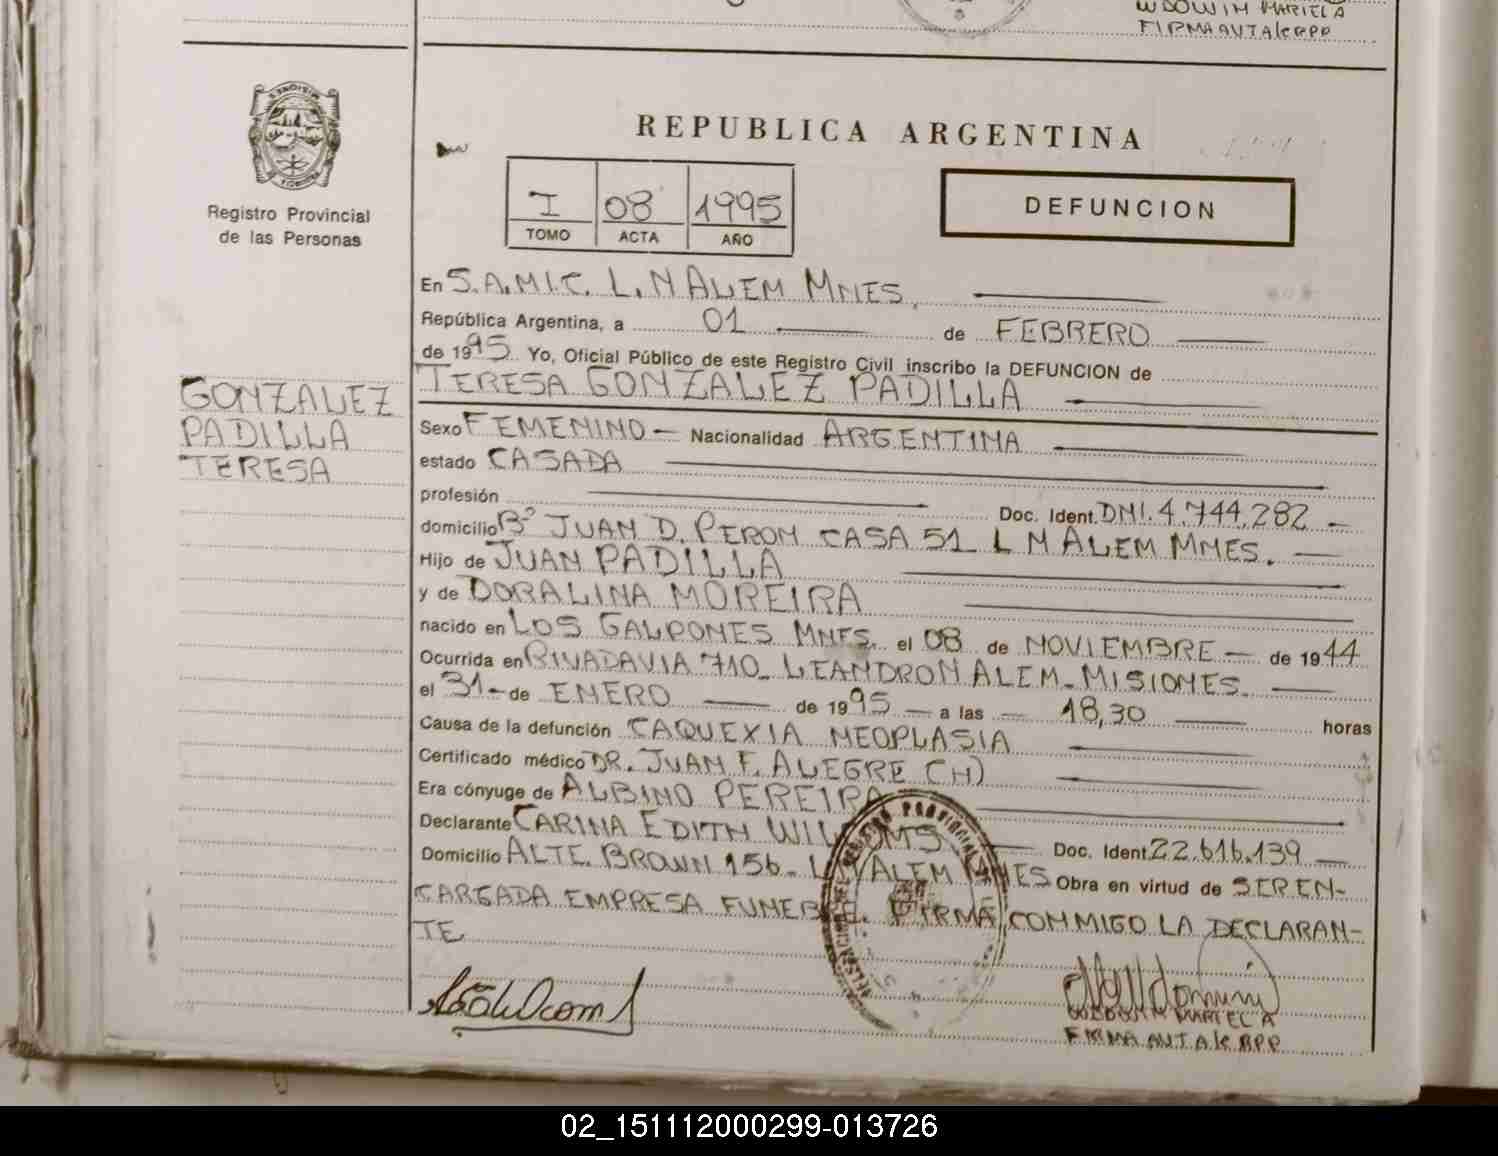 WDOWIN MARIELA
FIRMA AUT A/C RPP
MISIONES
Registro Provincial
de las Personas
REPUBLICA ARGENTINA
I 08 1995
TOMO ACTA AÑO
DEFUNCION
En S.A.M.I.C. L. N ALEM MNES.
República Argentina, a 01 de FEBRERO
de 1995 Yo, Oficial Público de este Registro Civil inscribo la DEFUNCION de
TERESA GONZALEZ PADILLA
GONZALEZ
PADILLA
TERESA
Sexo FEMENINO - Nacionalidad ARGENTINA
estado CASADA
profesión
Doc. Ident. DNI. 4.744.282 -
domicilio Bº JUAN D. PERON CASA 51 L N ALEM MNES.
Hijo de JUAN PADILLA
y de DORALINA MOREIRA
nacido en LOS GALPONES MNES. el 08 de NOVIEMBRE - de 1944
Ocurrida en RIVADAVIA 710_ LEANDRO N ALEM_ MISIONES.
el 31 - de ENERO de 1995 - a las - 18,30 horas
Causa de la defunción CAQUEXIA NEOPLASIA
Certificado médico DR. JUAN F. ALEGRE (H)
Era cónyuge de ALBINO PEREIRA
Declarante CARINA EDITH Doc. Ident. 22.616.139
Domicilio ALTE. BROWN 156_ L N ALEM MNES Obra en virtud de SER EN-
CARGADA EMPRESA FUNEBRE. FIRMA CONMIGO LA DECLARAN-
TE
REGISTRO PROVINCIAL
WDOWIN MARIELA
FIRMA AUT A/C RPP
02_151112000299-013726